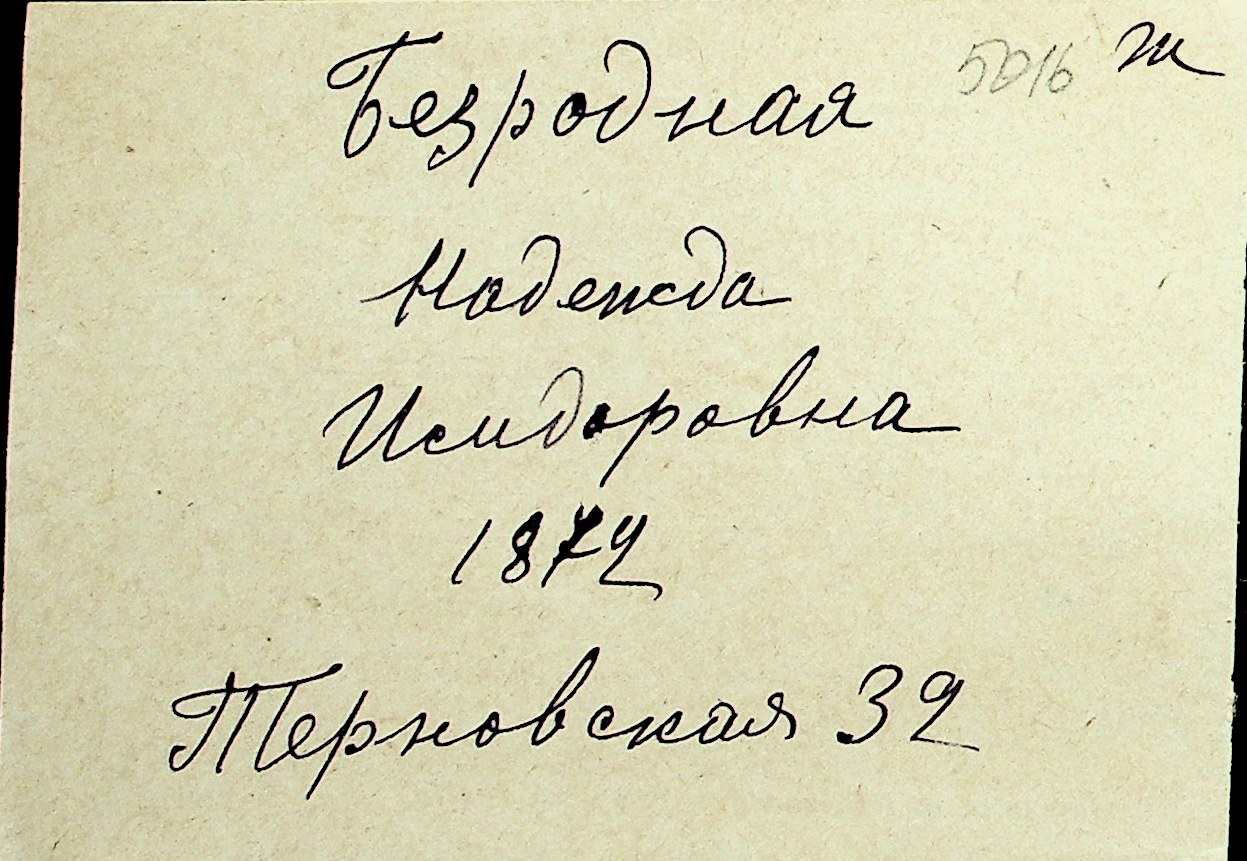 Безродная 5016 ж
Надежда
Исидоровна
1872
Терновская 32